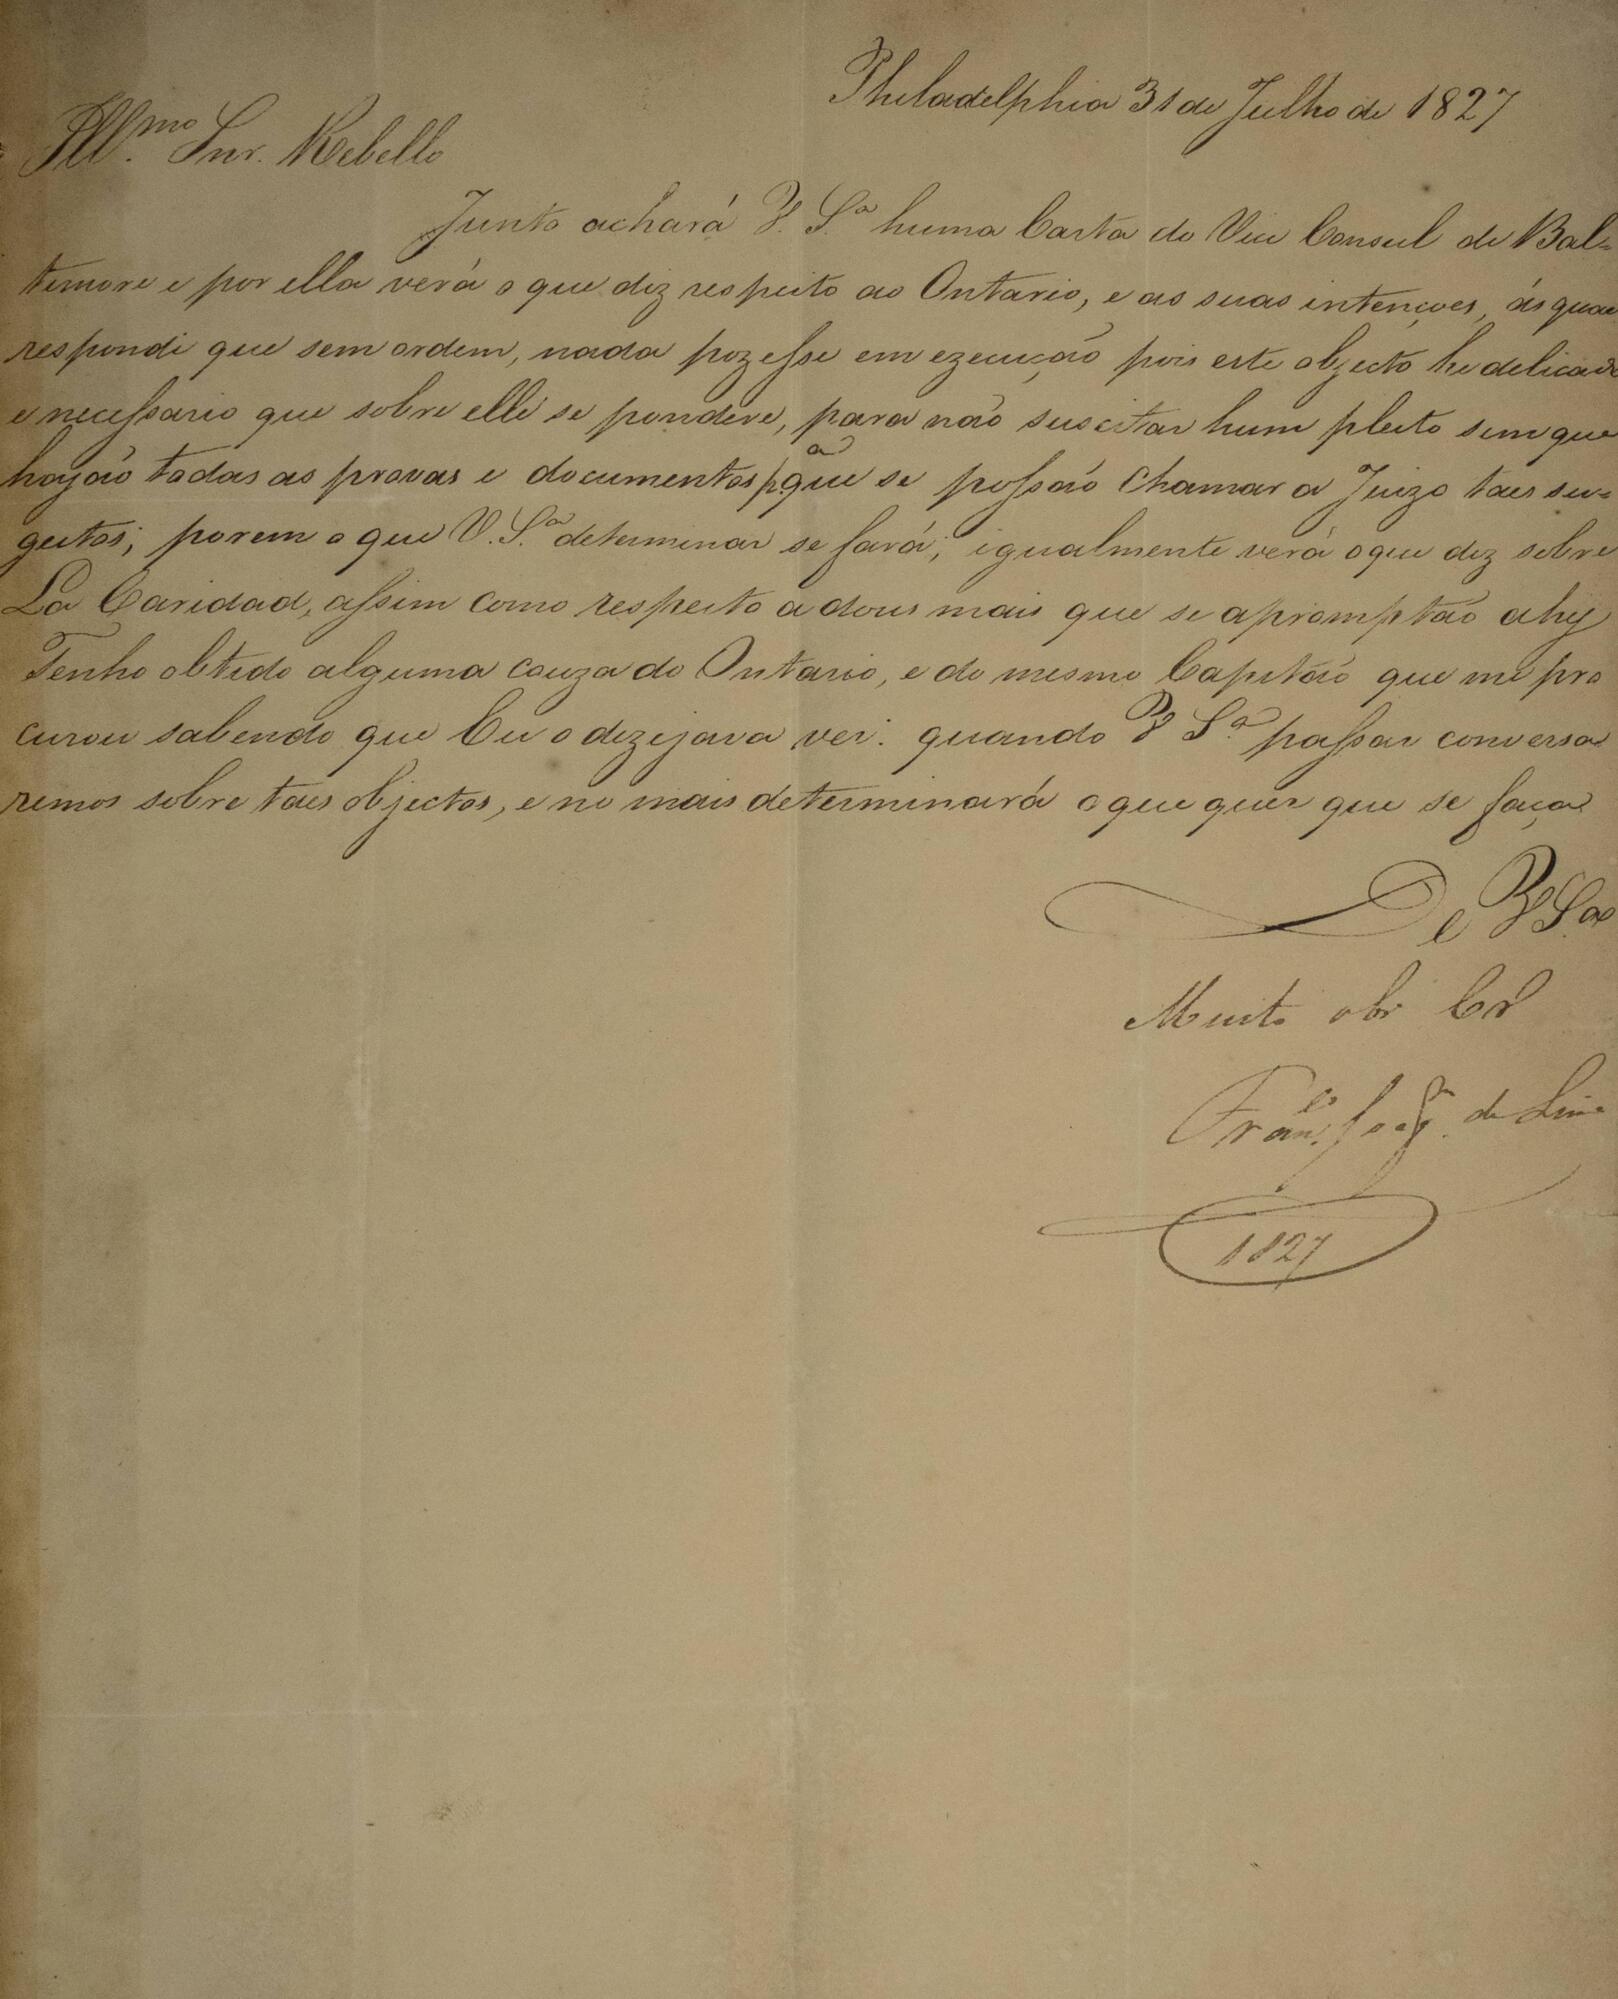 Philadelphia 31 de Julho de 1827
Ill.mo Snr. Rebello
Junto achará V. S.ª huma Carta do Vice Consul de Bal=
temore e por ella verá o que diz respeito ao Ontario, e as suas intençoes, ás quaes
respondi que sem ordem, nada pozesse em ezecução pois este objecto he delicado
e necessario que sobre elle se pondere, para não suscitar hum pleito sem que
hajão todas as provas e documentos p.ª que se possão chamar a Juizo taes su=
geitos; porem o que V. S.ª determinar se fará; igualmente verá o que diz sobre
La Caridad, assim como respeito a dous mais que se apromptão ahy
Tenho obtido alguma couza do Ontario, e do mesmo Capitão que me pro
curou sabendo que Eu o dezejava ver: quando V S.ª passar conversa
remos sobre taes objectos, e no mais determinará o que quer que se faça
De V S.ª
Muito obr Cr
Fran.co Joaq.m de Lima
1827